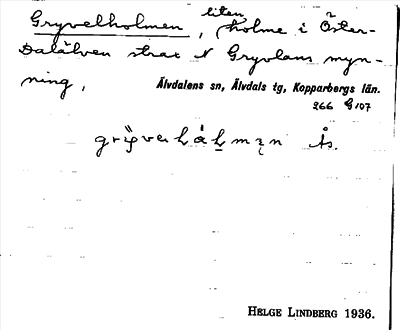 Gryvelholmen, liten holme i Öster-
Dalälven strax N Gryvlans myn-
ning,
Älvdalens sn, Älvdals tg, Kopparbergs län.
266 G 107
Ås.
HELGE LINDBERG 1936.